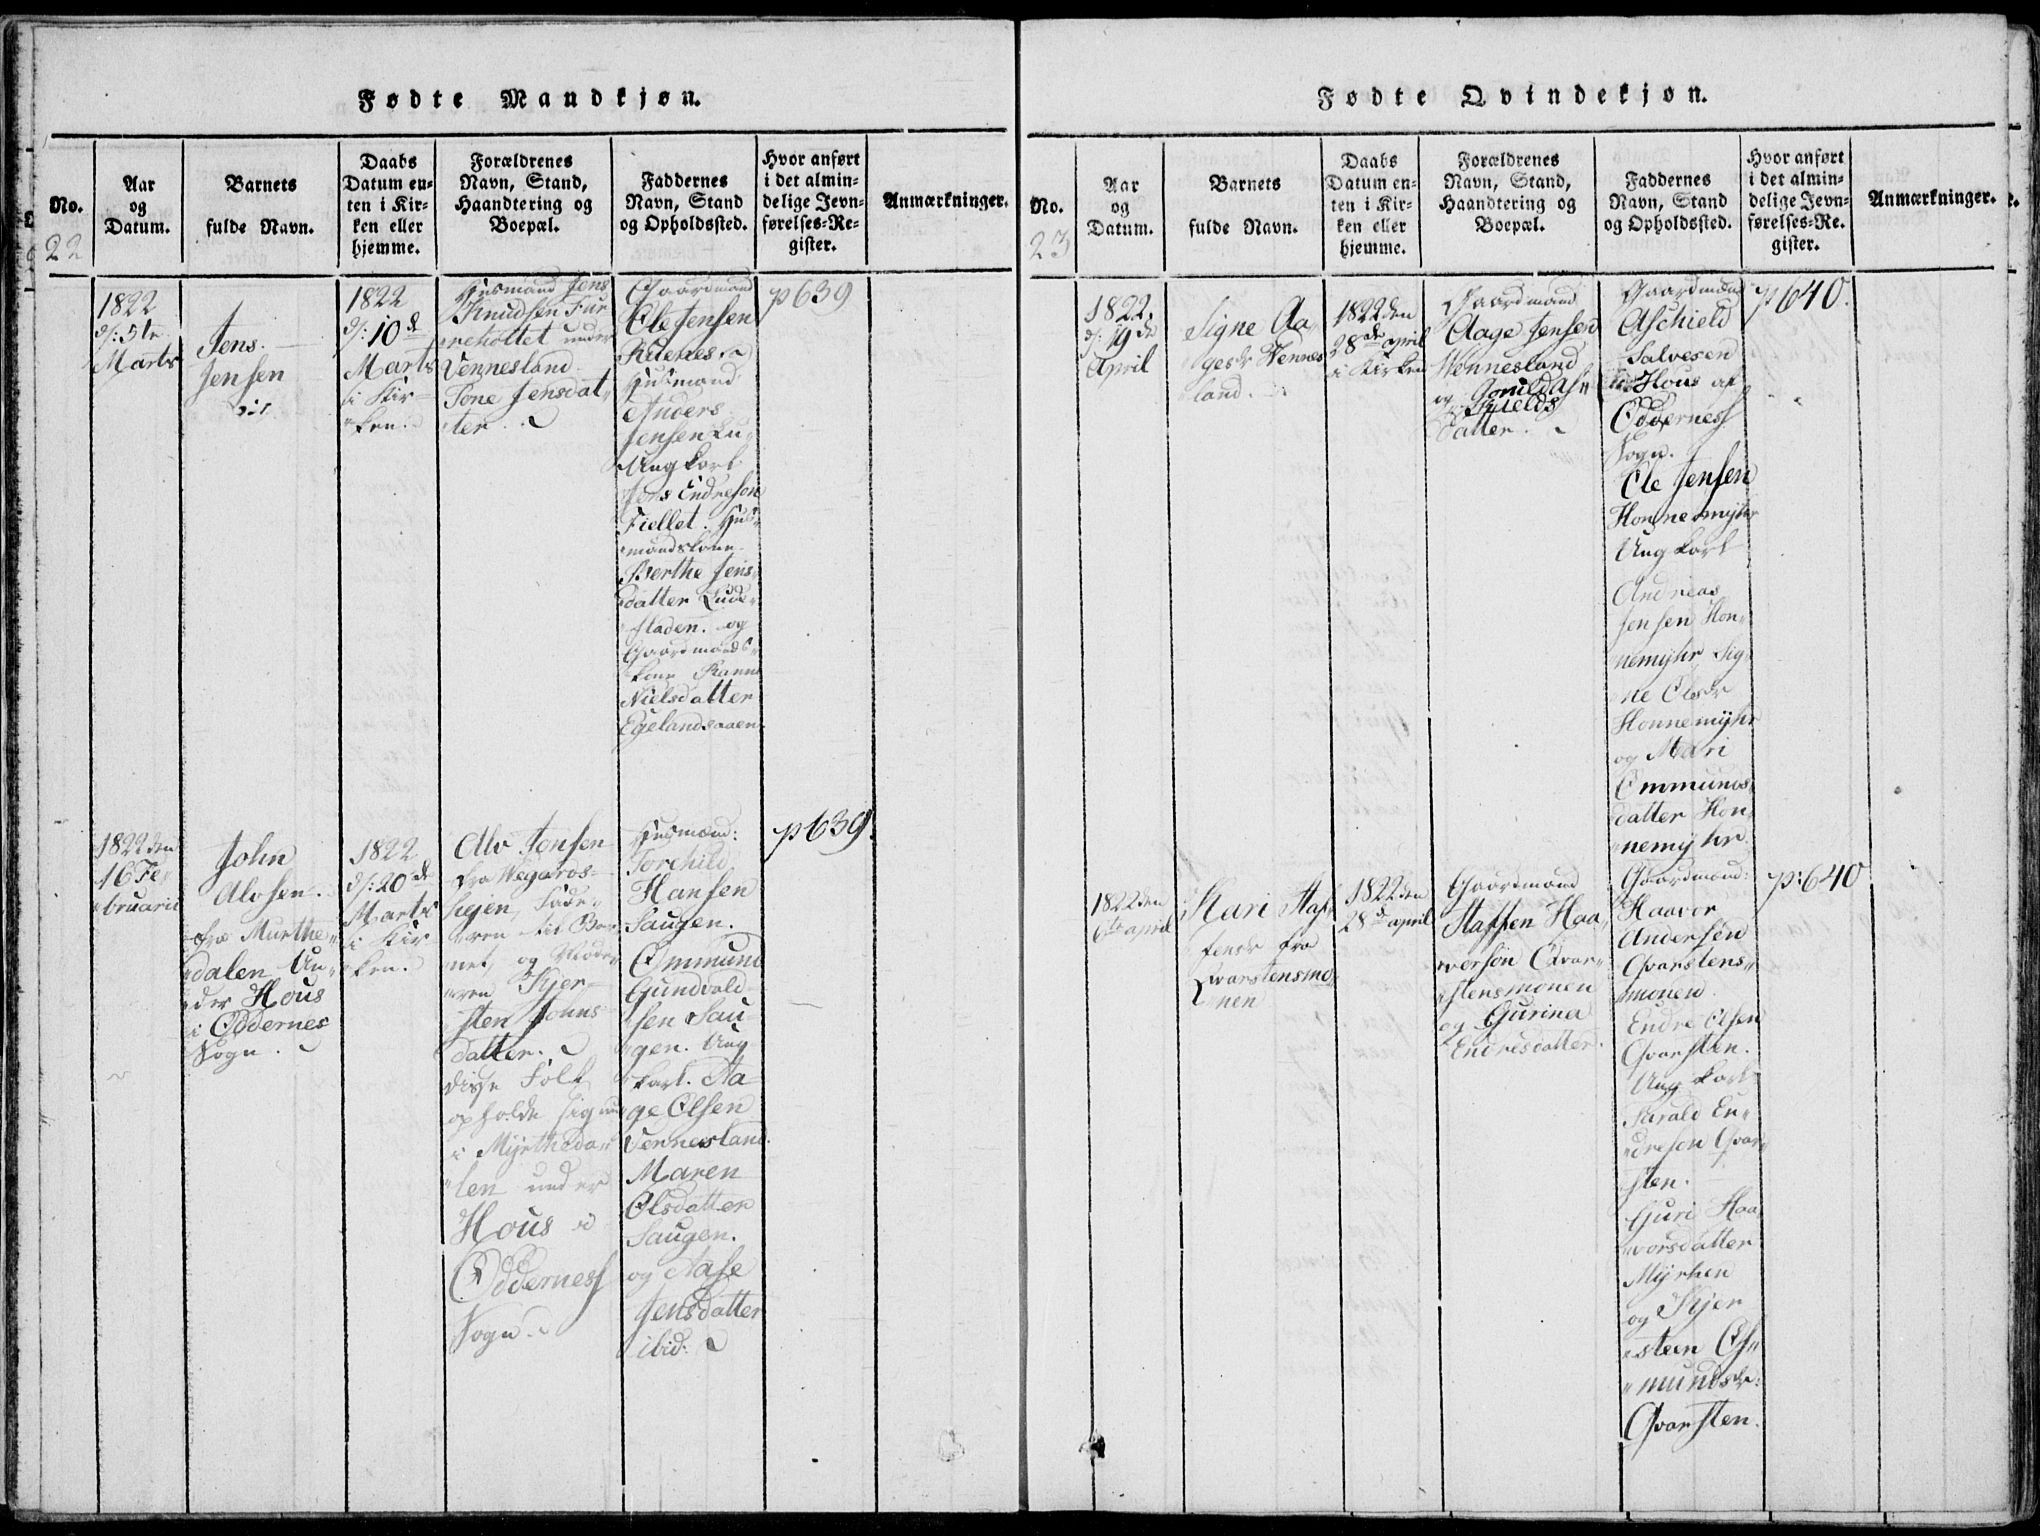 Fødte Mandkjøn.
No.
22
Aar
og
Datum.
Barnets
fulde Navn.
Daabs
Datum en-
ten i Kir-
ken eller
hjemme.
Forældrenes
Navn, Stand,
Haandtering og
Boepæl.
Faddernes
Navn, Stand
og Opholdssted.
Hvor anført
i det almin-
delige Jevn-
førelses-Re-
gister.
Anmærkninger.
1822
d: 5te
Marts
Jens
Jensen
1822
d: 10de
Marts
i Kir-
ken.
Huusmand Jens
Knudsen Fur
reholtet under
Vennesland
Tone Jensdat,,
ter.
Gaardmand
Ole Jensen
Huusmand
Anders
Jensen Lu
Ung karl
Jens Endreson
Fiellet. Huus
mandskone
Berthe Jens
datter Lude
staden. og
Gaardmands
kone
Nielsdatter
Egelandsaaen
p 639
1822 den
16 Fe,,
bruarii
John
Alvsen.
fra Murthe,,
dalen Un,,
der Hous
i Oddernes
Sogn.
1822
d: 20de
Marts
i Kir
ken.
Alv Jensen
fra Wegaros-
hejen, Fade-
ren til Bar
net, og Mode-
ren Kjer-
sten Johns
datter.
disse Folk
opholde sig nu
i Myrtheda,,
len under
Hous i
Oddernes
Sogn.
Husmænd:
Torchild
Hansen
Saugen.
Ommund
Gundvald
sen Sau-
gen. Ung
karl. Aa
ge Olsen
Vennesland.
Maren
Olsdatter
Saugen.
og Aase
Jensdatter
ibid:
p 639.
Fødte Qvindekjøn.
No.
23
Aar
og
Datum.
Barnets
fulde Navn.
Daabs
Datum en-
ten i Kir-
ken eller
hjemme.
Forældrenes
Navn, Stand,
Haandtering og
Boepæl.
Faddernes
Navn, Stand
og Opholdssted.
Hvor anført
i det almin-
delige Jevn-
førelses-Re-
gister.
Anmærkninger.
1822.
d: 19de
April
Signe Aa,,
gesdr Vennes
land.
1822 den
28de april
i Kirken
Gaardmand
Aage Jensen
Vennesland
og Gonild As,,
kields
datter.
Gaardmænd
Aschield
Salvesen
Hous af
Oddernes
Sogn.
Ole Jensen
Honnemyhr
Ung karl
Andreas
Jensen Hon,,
nemyhr, Sig,,
ne Olsdr
Honnemyhr
og Mari
Ommunds,,
datter Hon,,
nemyhr.
p 640.
1822 den
6te april
Kari Staf,,
fensdr fra
Qvarstensmo,,
nen
1822 den
28de april
Gaardmand
Staffen Haa,,
vorson Qvar,,
stensmonen
og Gurina
Endresdatter.
Gaardmænd:
Haavor
Andersen
Qvarstens,,
monen.
Endre Olsen
Qvarsten.
Ung karl
Harald En,,
dreson Qvar,,
sten.
Guri Haa
vorsdatter
Myrhen
og Kjer
steen Os,,
mundsdr:
Qvarsten.
p: 640